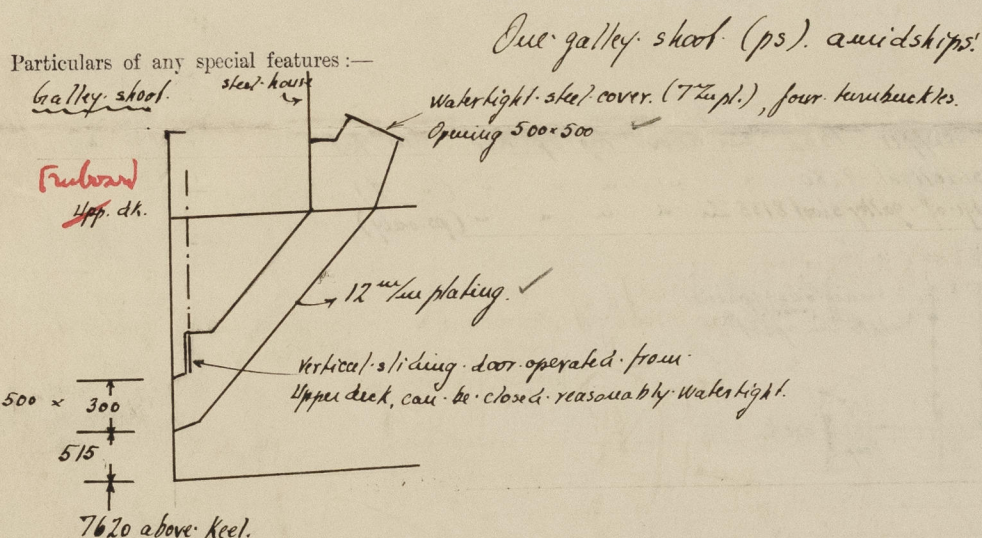 One galley shoot (ps). amidships.
Particulars of any special features :—
Galley shoot.
steel house
watertight steel cover. (7 m pl.), four turnbuckles.
Opening 500x500
Freeboard
Upp. dk.
12 m/m plating.
vertical sliding door operated from
Upper deck, can be closed reasonably watertight.
500 x 300
515
7620 above Keel.